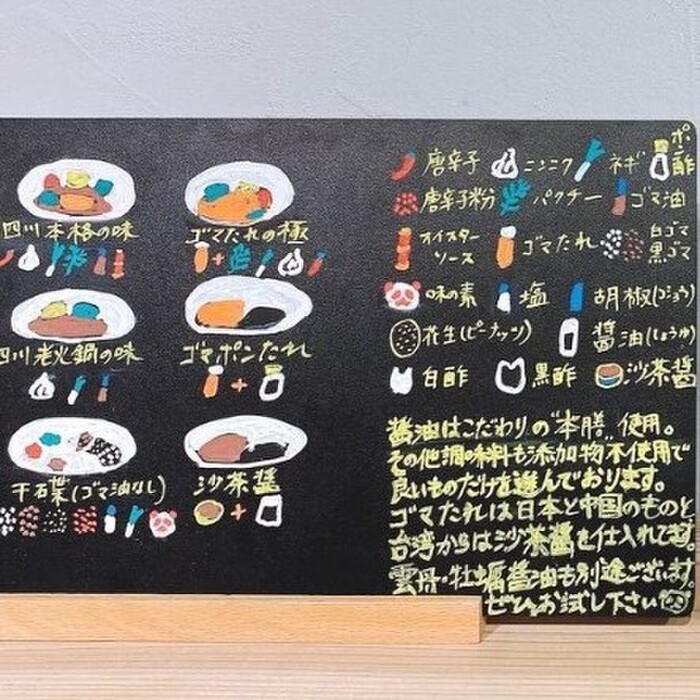 四川本格の味
ゴマたれの極
四川老火鍋の味
ゴマポンたれ
干石葉(ゴマ油なし)
沙茶醤
唐辛子 ニンニク ネギ ポン酢
唐辛子粉 パクチー ゴマ油
オイスターソース ゴマたれ 白ゴマ黒ゴマ
味の素 塩 胡椒(コショウ)
花生(ピーナッツ) 醤油(しょうゆ)
白酢 黒酢 沙茶醤
醤油はこだわりの"本膳"使用。
その他調味料も添加物不使用で
良いものだけを選んでおります。
ゴマたれは日本と中国のものと
台湾からは沙茶醤を仕入れてます
雲丹・牡蠣醤油も別途ございます。
ぜひお試し下さい